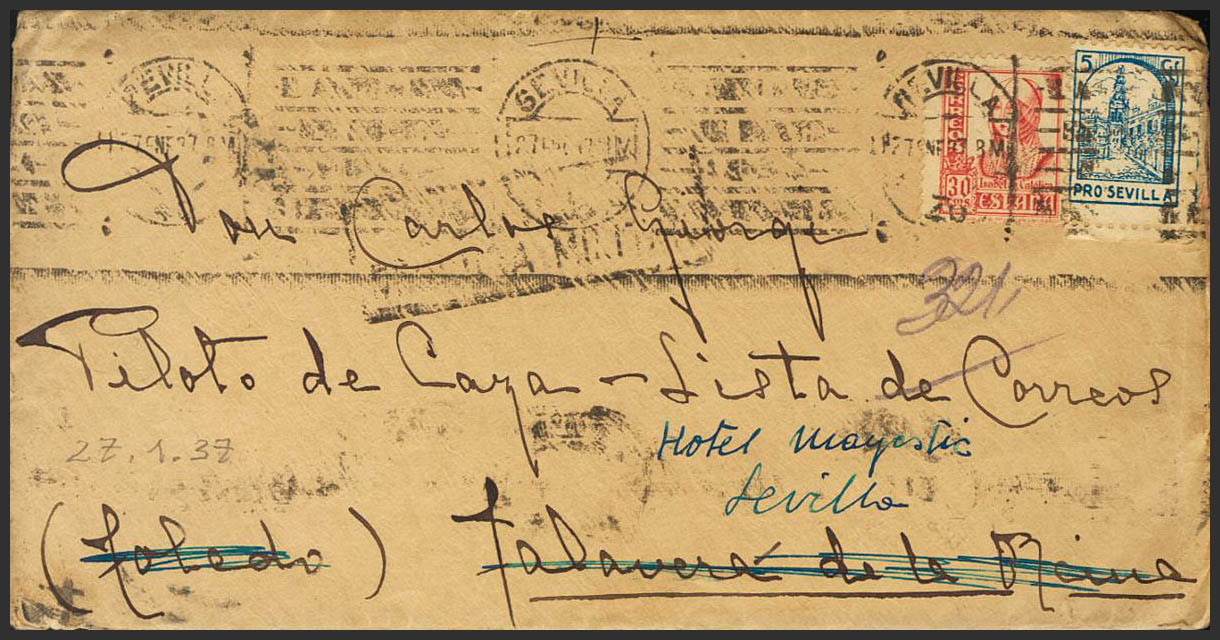 SEVILLA
SEVILLA
SEVILLA
27 ENE 37 8 M
27 ENE 37 8 M
CORREOS
30
CTS
Isabel Católica
ESPAÑA
5 Cs
PRO SEVILLA
Don Carlos George
321
Piloto de Caza - Lista de Correos
27.1.37
Hotel Mayestic
Sevilla
(Toledo) Talavera de la Reina